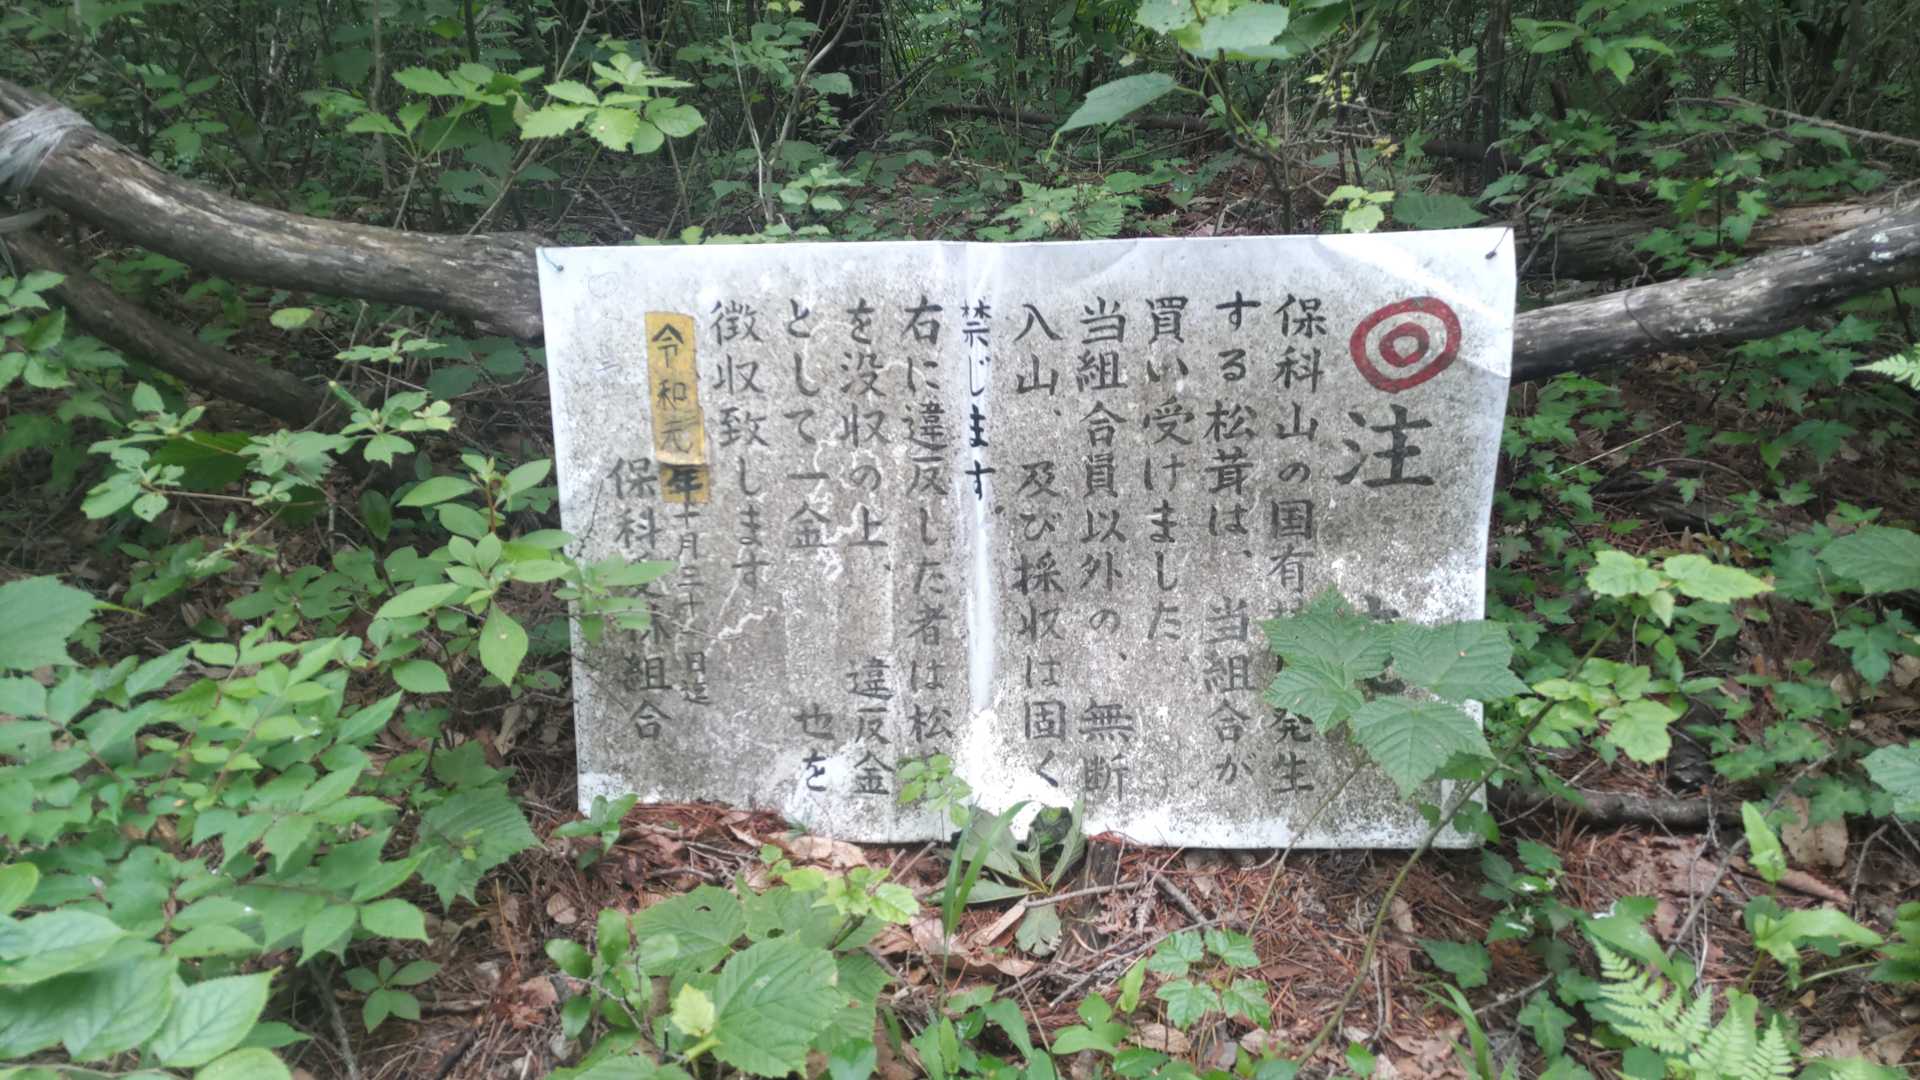 注
保科山の国有 発生
する松茸は、当組合が
買い受けました、
当組合員以外の、無断
入山、及び採収は固く
禁じます。
右に違反した者は松
を没収の上、違反金
として一金 也を
徴収致します
令和元年十月三十 日迄
保科 組合